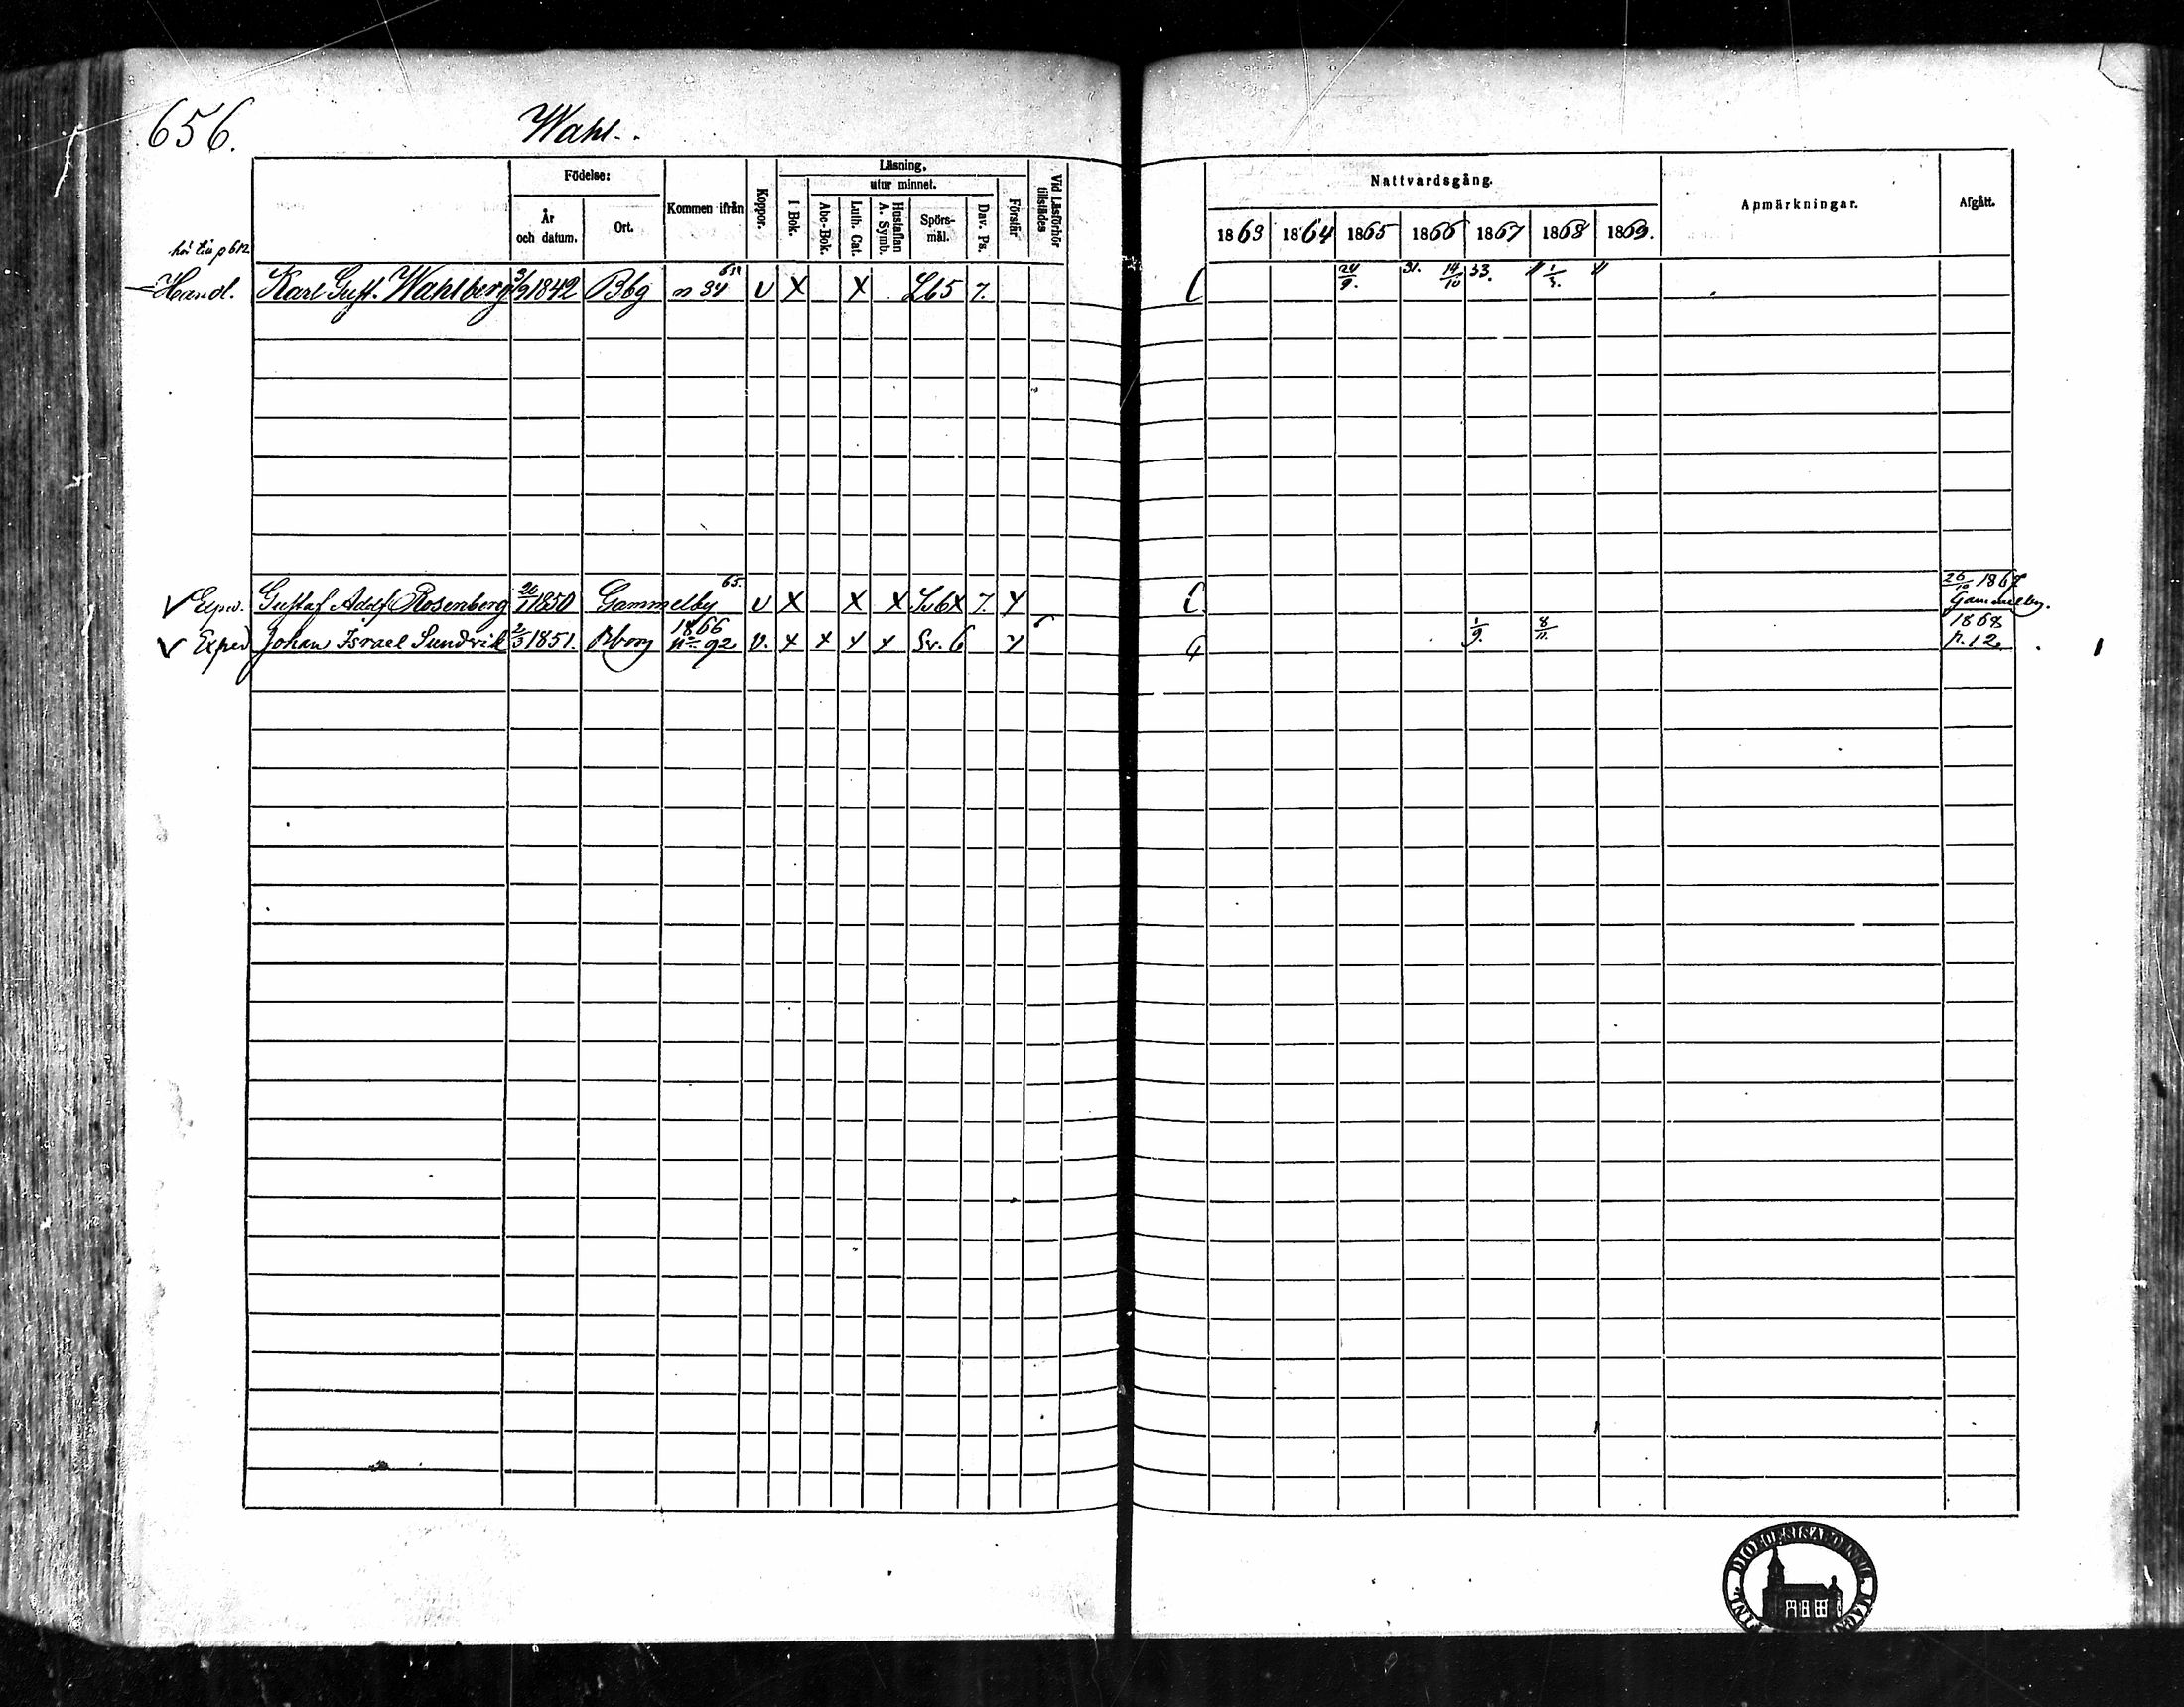 656. Wahl.
Födelse: Läsning, Nattvardsgång.
utur minnet.
År och datum. Ort. Kommen ifrån Koppor. I Bok. Abc-Bok. Luth. Cat. Hustaflan A. Symb. Spörs-mål. Dav. Ps. Förstår Vid Läsförhör tillstädes 1863 1864 1865 1866 1867 1868 1869. Apmärkningar. Afgått.
p 612
Hand. Karl Gust. Wahlberg 3/9 1842 Bbg n 34 v X X 7. 24/9. 31. 14/10 33. 1/3.
Exped. Gustaf Adolf Rosenberg 20/1 1850 Gammelby 65. v X X X Sv 6X 7. Y 26/10 1867 Gammelby.
Exped Johan Israel Sundvik 2/3 1851. Bborg 1866 n 92 v. x x y x Sv. 6 y 1/9. 8/11. 1868 n. 12.